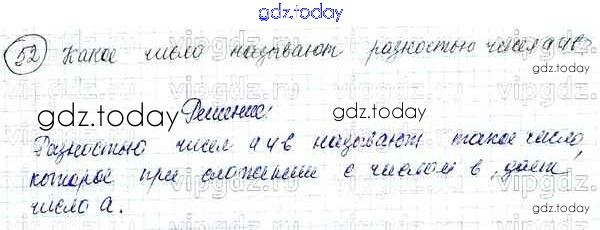 gdz.today
52 Какое число называют разностью чисел а и в?
gdz.today
gdz.today
Решение:
Разностью чисел а и в называют такое число,
которое при сложении с числом в, дает
число а.
gdz.today
gdz.today